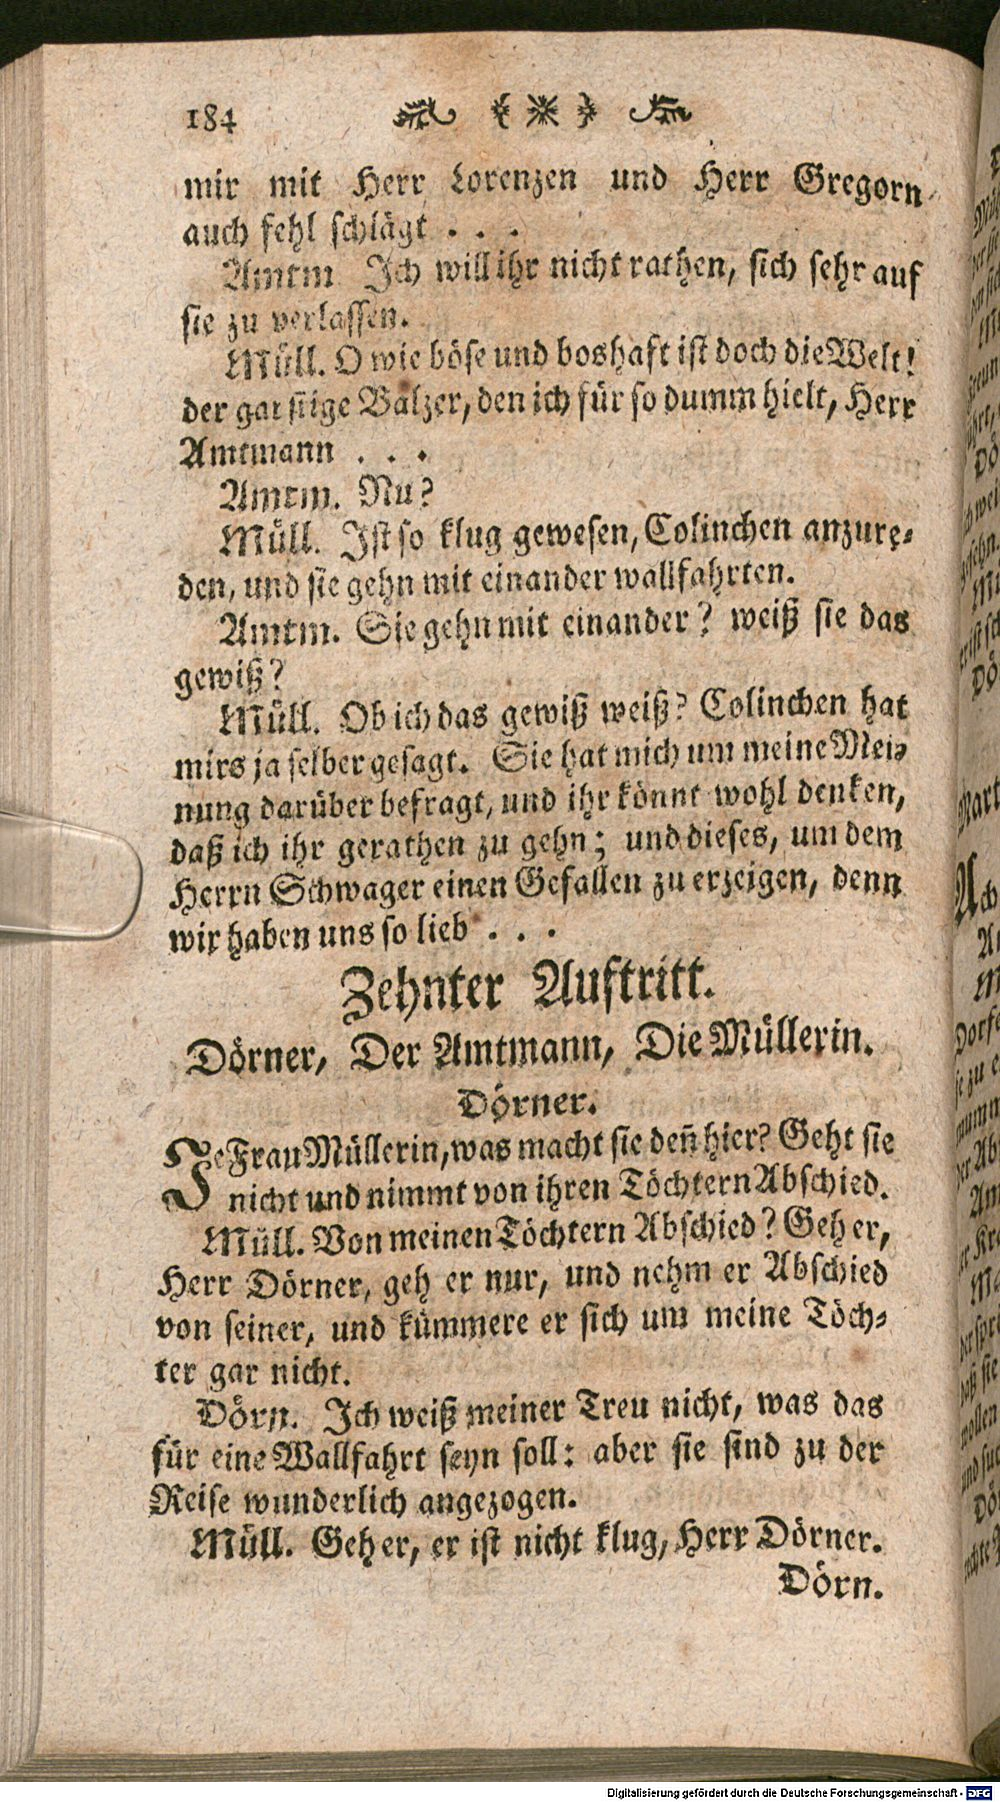 184
mir mit Herr Lorenzen und Herr Gregorn
auch fehl schlägt . . .
Amtm Ich will ihr nicht rathen, sich sehr auf
sie zu verlassen.
Müll. O wie böse und boshaft ist doch die Welt!
der garstige Balzer, den ich für so dumm hielt, Herr
Amtmann . . .
Amtm. Nu?
Müll. Ist so klug gewesen, Colinchen anzure-
den, und sie gehn mit einander wallfahrten.
Amtm. Sie gehn mit einander? weiß sie das
gewiß?
Müll. Ob ich das gewiß weiß? Colinchen hat
mirs ja selber gesagt. Sie hat mich um meine Mei-
nung darüber befragt, und ihr könnt wohl denken,
daß ich ihr gerathen zu gehn; und dieses, um dem
Herrn Schwager einen Gefallen zu erzeigen, denn
wir haben uns so lieb . . .
Zehnter Auftritt.
Dörner, Der Amtmann, Die Müllerin.
Dörner.
Je Frau Müllerin, was macht sie den̄ hier? Geht sie
nicht und nimmt von ihren Töchtern Abschied.
Müll. Von meinen Töchtern Abschied? Geh er,
Herr Dörner, geh er nur, und nehm er Abschied
von seiner, und kümmere er sich um meine Töch-
ter gar nicht.
Dörn. Ich weiß meiner Treu nicht, was das
für eine Wallfahrt seyn soll: aber sie sind zu der
Reise wunderlich angezogen.
Müll. Geh er, er ist nicht klug, Herr Dörner.
Dörn.
Digitalisierung gefördert durch die Deutsche Forschungsgemeinschaft - DFG